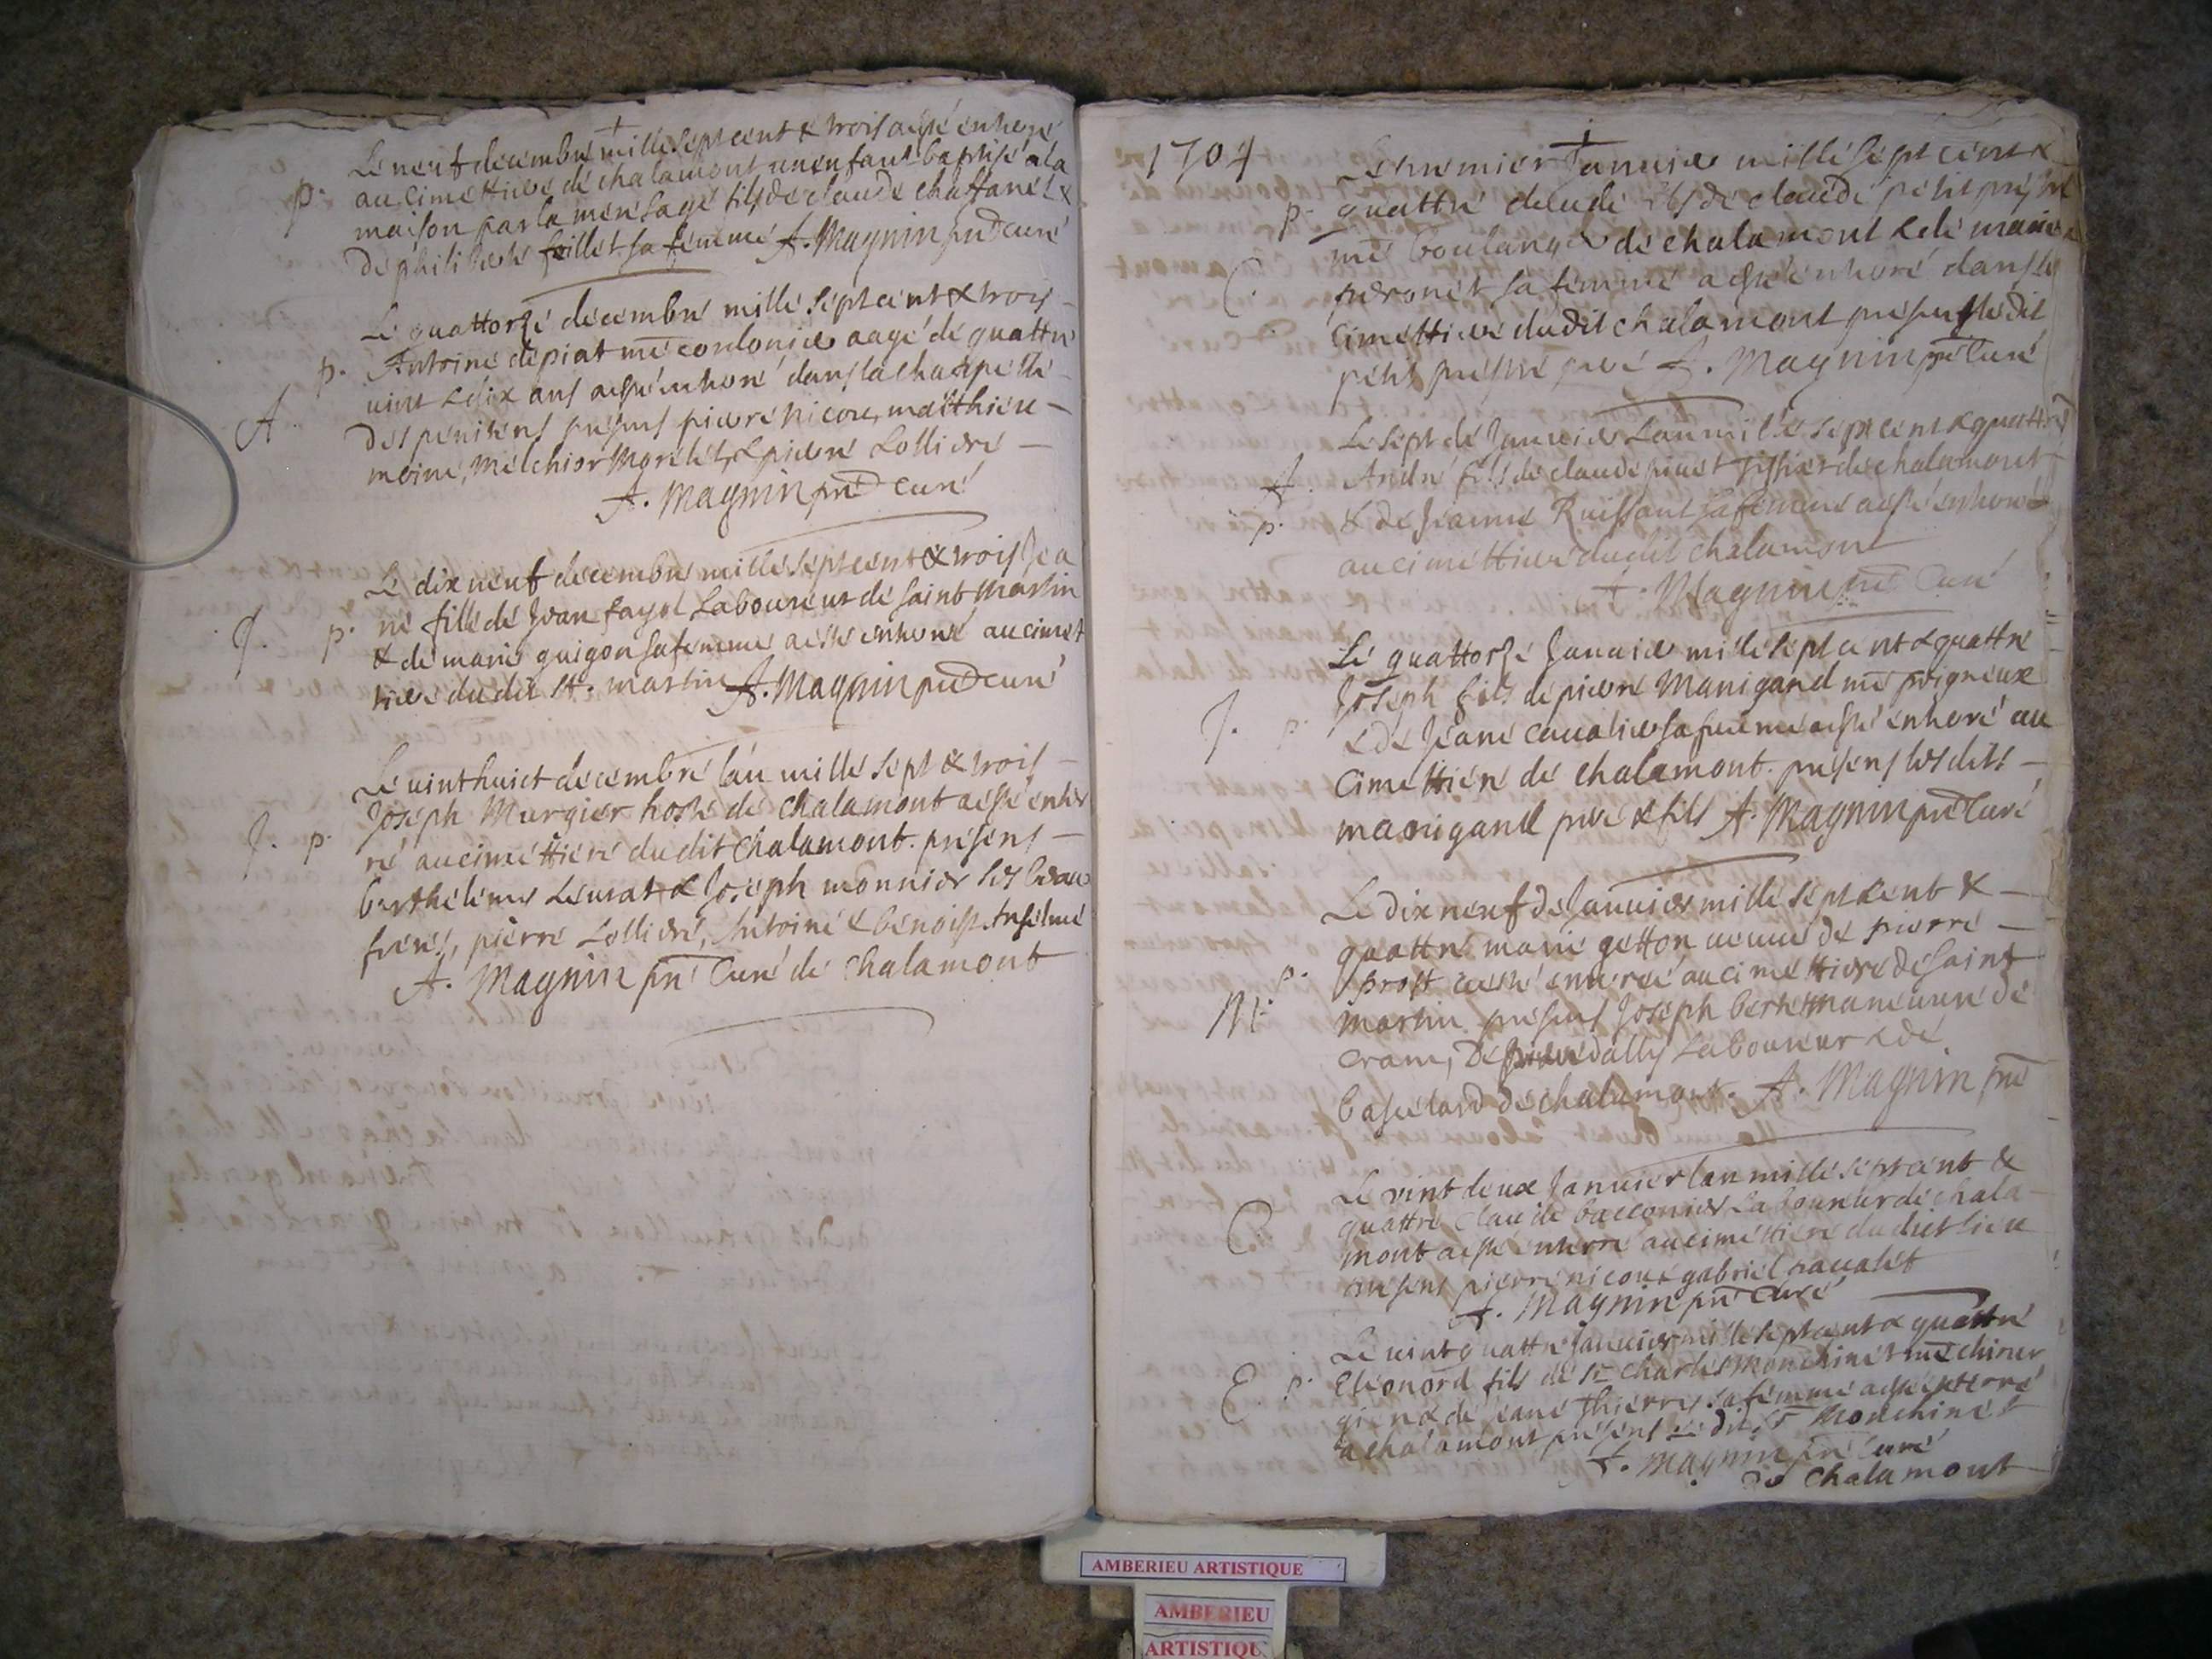 Le neuf decembre mille sept cent & trois a esté enterré
p. au cimettiere de chalamont un enfant baptisé a la
maison par la mere sage fils de claude chaffanet &
de philiberte feillet sa femme A. Magnin pr̃e curé
Le quattorze decembre mille sept cent & trois
p. Antoine depiat mẽ cordonier aagé de quattre
A. vint & six ans a esté enterré dans la chappelle
des penitens presens pierre nicou, matthieu
moine, Melchior Morelet, & pierre Lolliere
A. Magnin pr̃e curé
Le dix neuf decembre mille sept cent & trois Jea
J. p. ne fille de Jean fayol Laboureur de saint Martin
& de marie guigon sa femme a esté enterré au cimet
tiere du dit St. martin A. Magnin pr̃e curé
Le vint huict decembre l'an mille sept & trois
Joseph Murgier hoste de chalamont a esté enter
J. p. ré au cimettiere du dit chalamont. presens
berthelemy Leurat & Joseph monnier ses beau
freres, pierre Lolliere, Antoine & benoist Anselme
A. Magnin pr̃e Curé de chalamont
1704
Le premier Janvier mille sept cent &
p. quattre claude fils de claude petit prestre
C. mẽ boulanger de chalamont & de marie
peronet sa femme a esté enterré dans le
cimettiere dudit chalamont present ledit
petit prestre pere A. Magnin pr̃e Curé
Le sept de Janvier L'an mille sept cent & quattre
A. André fils de claude pivet tissier de chalamont
p. & de Jeanne Ruissant sa femme a esté enterré
au cimettiere dudit chalamont
A. Magnin pr̃e Curé
Le quattorze Janvier mille sept cent & quattre
J. p. Joseph fils de pierre Manigand mẽ peigneux
& de Jeane cavalier sa femme a esté enterré au
Cimettiere de chalamont. presens lesdits
manigand pere & fils A. Magnin pr̃e Curé
Le dix neuf de Janvier mille sept cent &
quattre marie getton veuve de pierre
p. prost a esté enterrée au cimettiere de saint
M. Martin presens Joseph berthet maneuvre de
crans, De pierre dally Laboureur & de
baselard de chalamont. A. Magnin pr̃e
Le vint deux Janvier lan mille sept cent &
C. quattre Claude bacconier Laboureur de chala
mont a esté enterré au cimettiere du dict lieu
presens pierre nicou & gabriel ravalet
A. Magnin pr̃e Curé
Le vint quattre Janvier mille sept cent & quattre
E. p. Eleonord fils de Sr. Charles Monchinet mẽ chirur
gien & de Jeane Thierry sa femme a esté enterré
a chalamont present Le dit Sr Monchinet
A. Magnin pr̃e Curé
de Chalamont
AMBERIEU ARTISTIQUE
AMBERIEU
ARTISTIQU